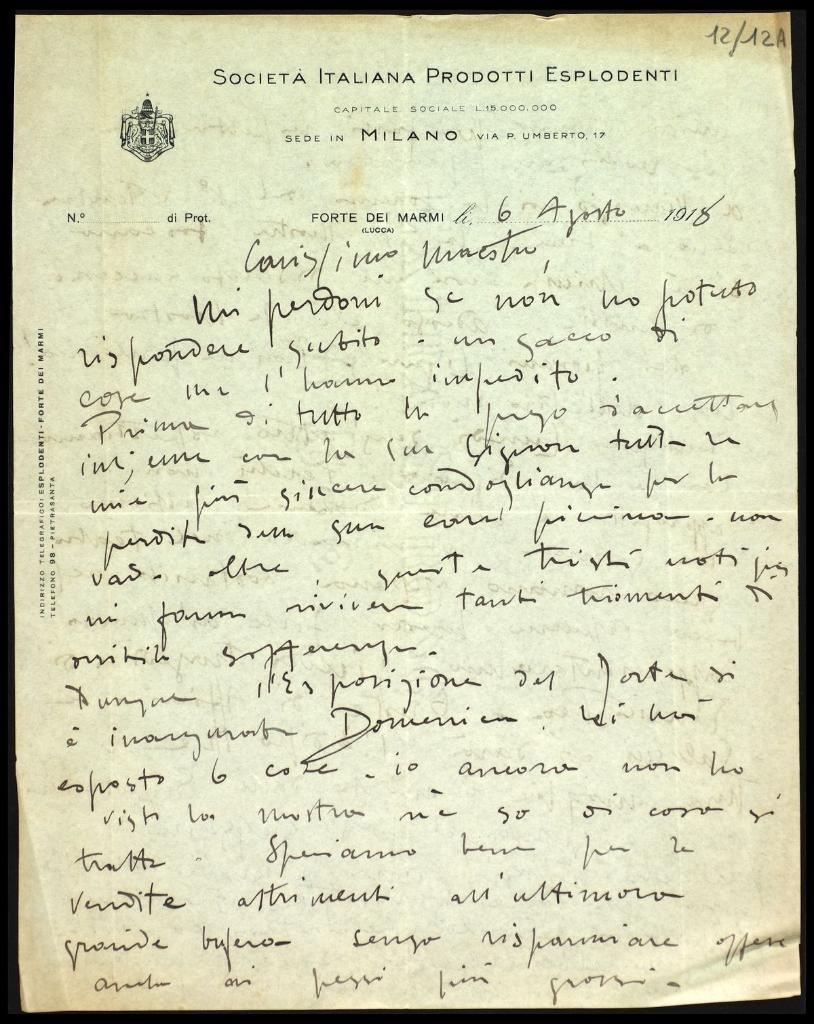 12/12A
SOCIETÀ ITALIANA PRODOTTI ESPLODENTI
CAPITALE SOCIALE L.15.000.000
SEDE IN MILANO VIA P. UMBERTO, 17
N.º di Prot. FORTE DEI MARMI li 6 Agosto 1918
(LUCCA)
Carissimo Maestro,
Mi perdoni se non ho potuto
rispondere subito - un sacco di
cose me l'hanno impedito.
Prima di tutto la prego d'accettare
insieme con la sua Signora tutte le
mie più sincere condoglianze per la
perdita della sua cara piccina - non
vado oltre, queste tristi notizie
mi fanno rivivere tanti momenti di
orribile sofferenza.
Dunque l'Esposizione del Forte si
è inaugurata Domenica. Lei ha
esposto 6 cose - io ancora non ho
visto la mostra nè so di cosa si
tratta. Speriamo bene per le
vendite altrimenti all'ultimora
grande bufera senza risparmiare offese
anche ai pezzi più grossi -
INDIRIZZO TELEGRAFICO: ESPLODENTI - FORTE DEI MARMI
TELEFONO 98 - PIETRASANTA